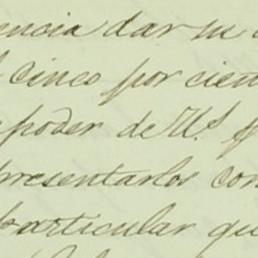 encia dar su
cinco por cien
poder de Ud.
presentarlos con
particular que